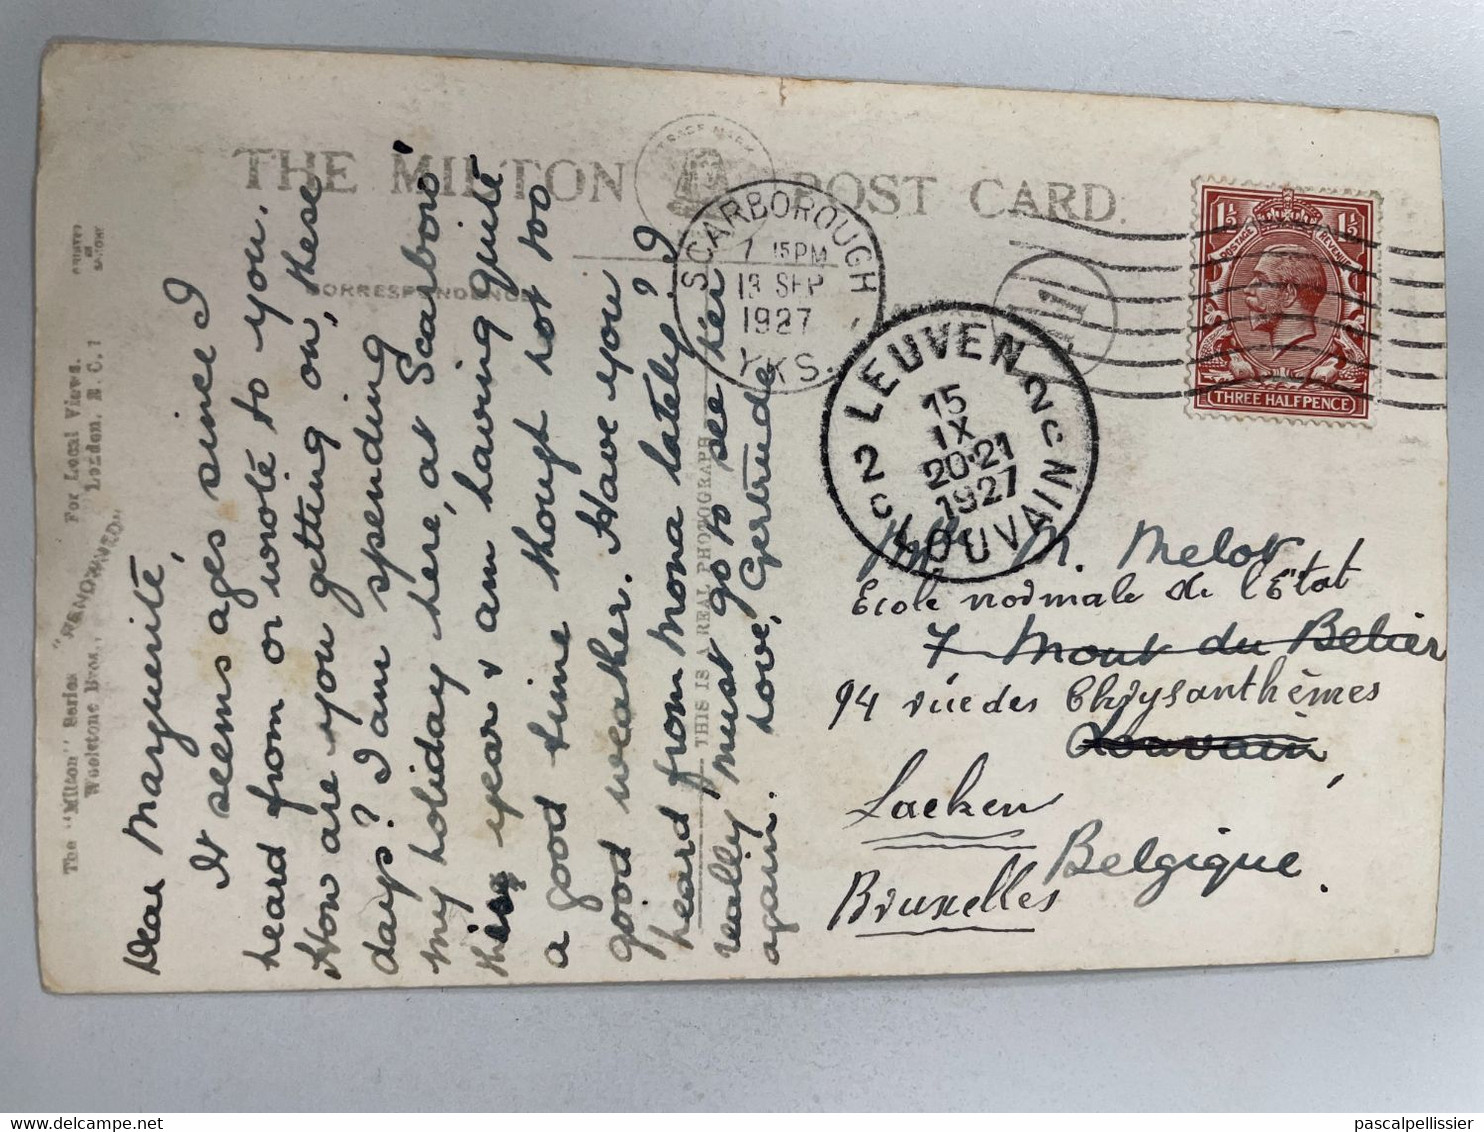 THE MILTON POST CARD.
TRADE MARK
CORRESPONDENCE
PRINTED
IN
SAXONY
The "Milton" Series "RENOWNED" For Local Views.
Woolstone Bros., London, E. C. 1
THIS IS A REAL PHOTOGRAPH
Dear Marguerite,
It seems ages since I
heard from or wrote to you.
How are you getting on, these
days? I am spending
my holiday here, at Scarboro'
this year & am having quite
a good time though not too
good weather. Have you
heard from Mona lately? I
really must go to see her
again. Love, Gertrude
SCARBOROUGH
7 15 PM
13 SEP
1927
YKS.
LEUVEN
2C 2C
15
IX
20-21
1927
LOUVAIN
1½ 1½
POSTAGE REVENUE
THREE HALFPENCE
M. Melot
Ecole normale de l'Etat
7 Mont du Belier
94 rue des Chrysanthèmes
Louvain,
Laeken
Belgique.
Bruxelles
pascalpellissier